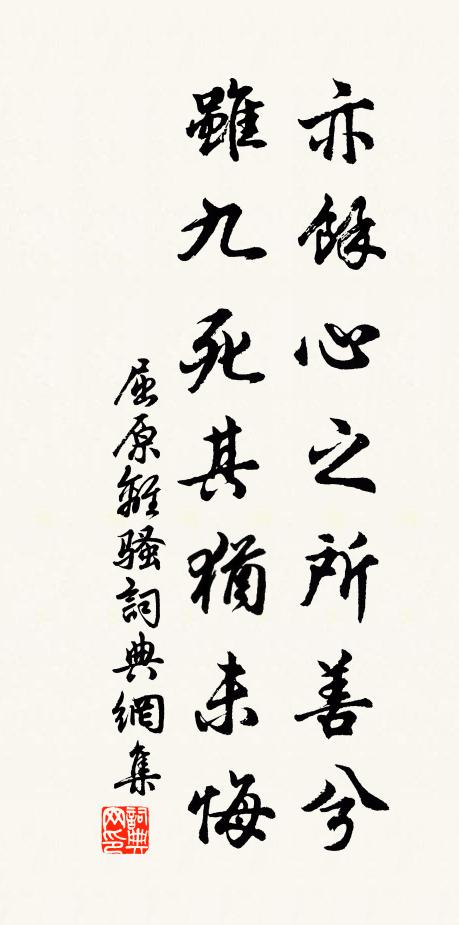 亦餘心之所善兮
雖九死其猶未悔
屈原離騷詞典網集
詞典
网印